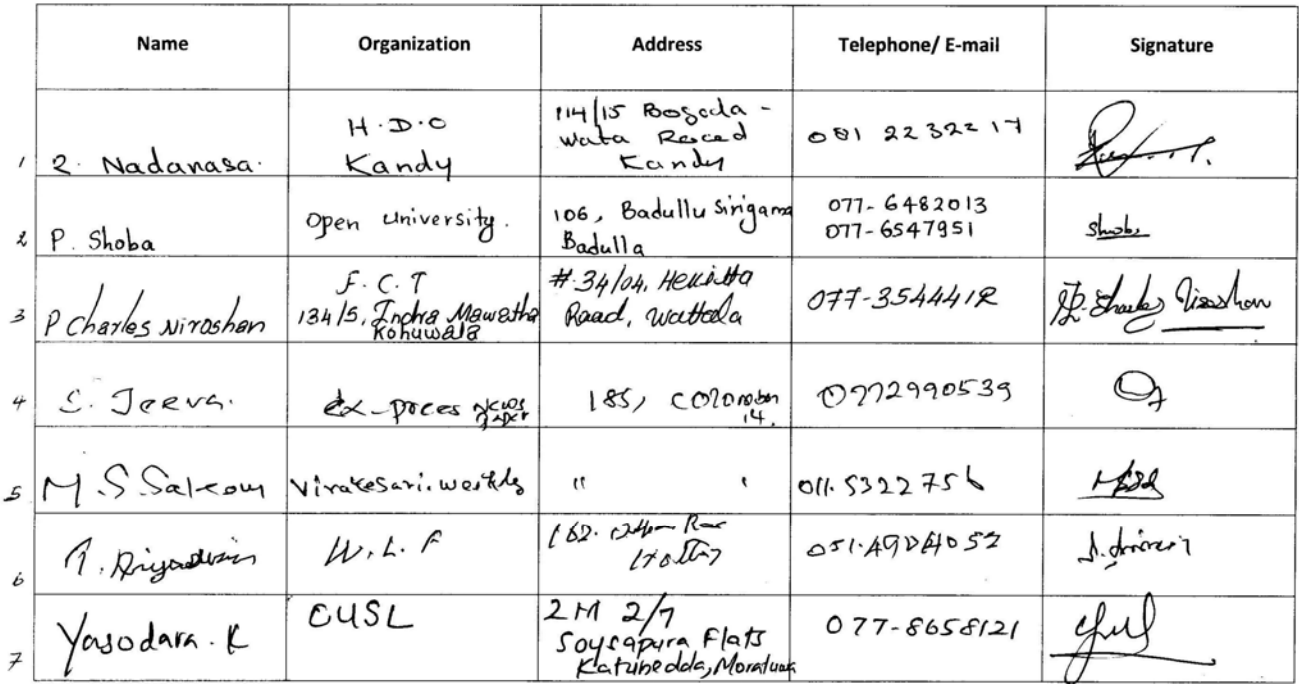 Name Organization Address Telephone/ E-mail Signature
1 R. Nadanasa. H.D.O Kandy 114/15 Bogoda - Wata Kandy 081 2232217
2 P. Shoba Open University. 106, Badullu Sirigama Badulla 077-6482013 077-6547951 Shoba
3 P Charles Niroshan F.C.T 134/5, Indra Mawatha Kohuwala #.34/04, Road, Wattala 077-3544412 P. Charles Niroshan
4 S. Jeeva. ex-prces news paper 185, Colombo 14, 0772990539
5 M.S Saleem Virakesari. weekly " " 011.5322756
6 W.L.F 162. Hatton 051.4904052
7 Yasodara. K OUSL 2M 2/7 Soysapura Flats Katubedda, Moratuwa 077-8658121